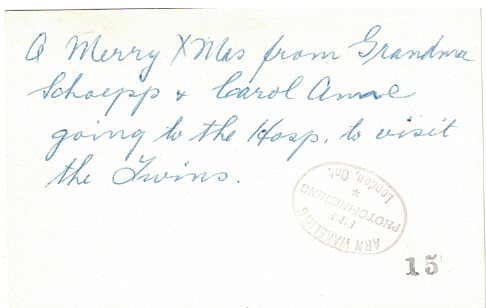 A Merry XMas from Grandma
Schoepp & Carol Anne
going to the Hosp. to visit
the Twins.
ARN WAKELING
FINE
PHOTOFINISHING
*
London, Ont.
15